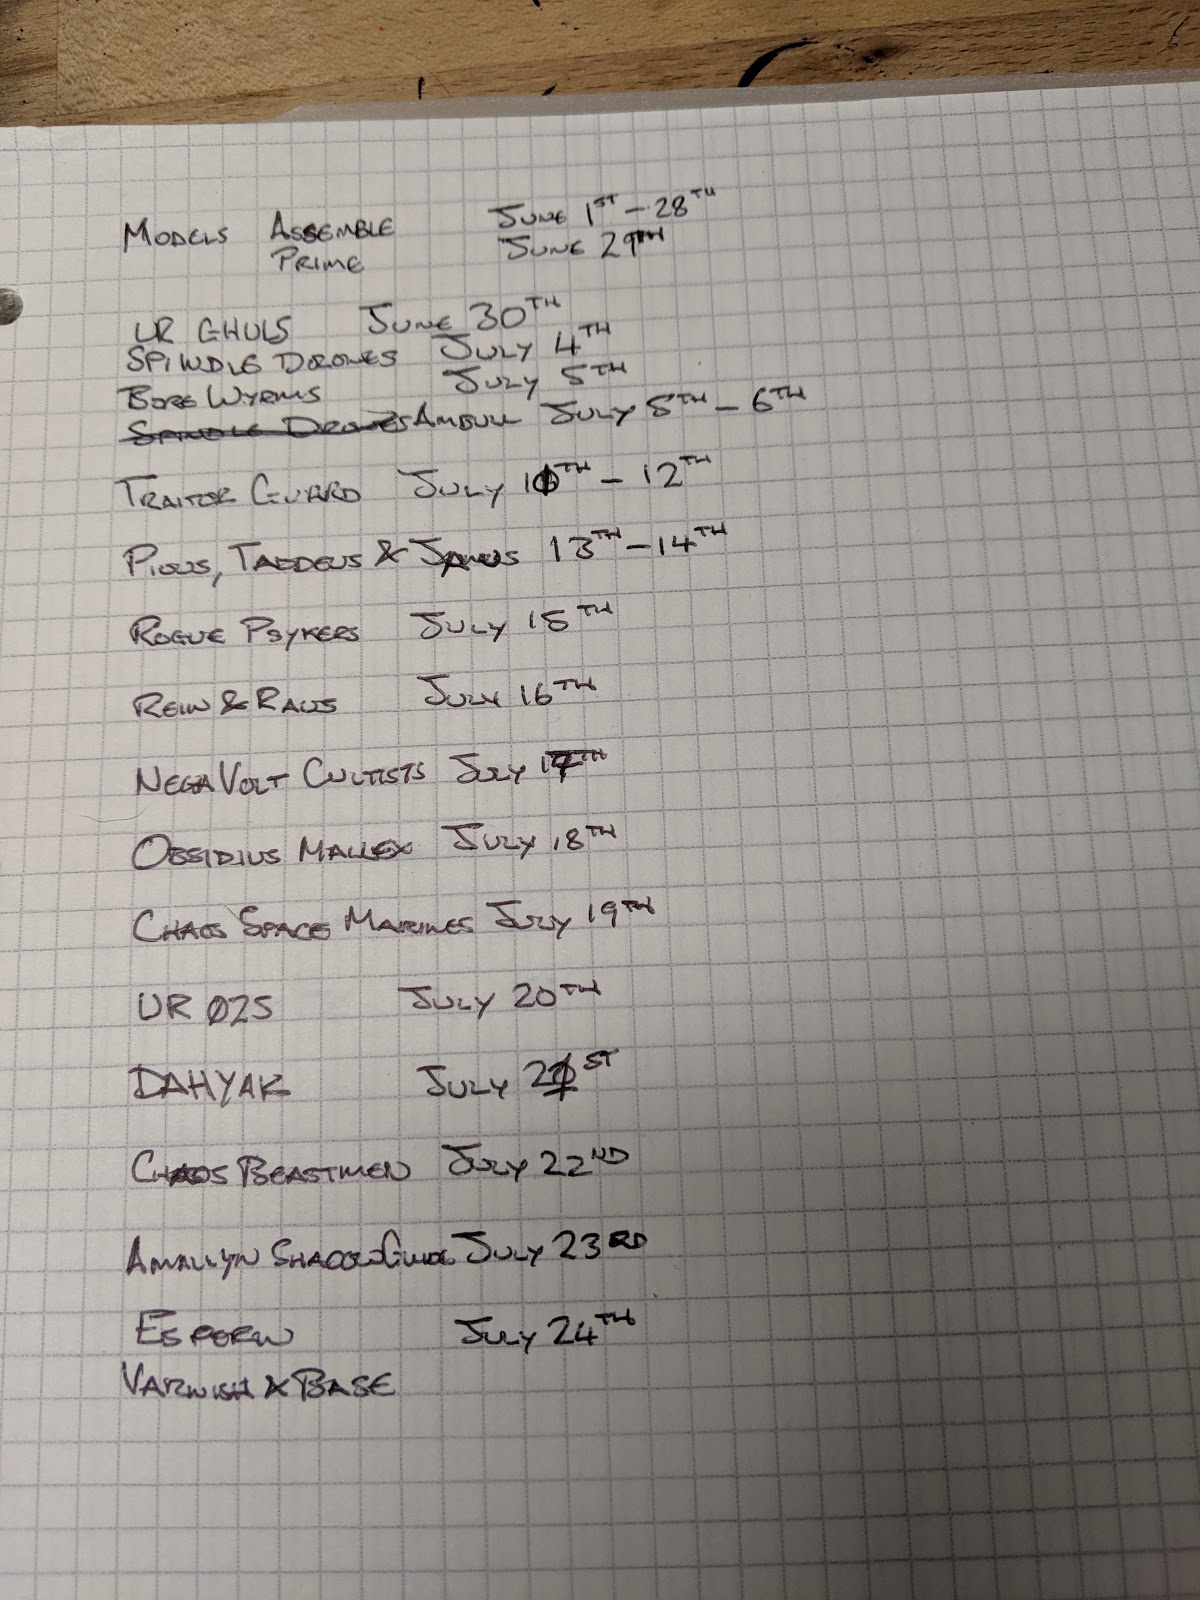 MODELS ASSEMBLE JUNE 1ST - 28TH
PRIME JUNE 29TH
UR GHULS JUNE 30TH
SPINDLE DRONES JULY 4TH
BORE WYRMS JULY 5TH
SPINDLE DRONES AMBULL JULY 5TH - 6TH
TRAITOR GUARD JULY 11TH - 12TH
PIOUS, TADDEUS & JANUS 13TH - 14TH
ROGUE PSYKERS JULY 15TH
REIN & RAUS JULY 16TH
NEGAVOLT CULTISTS JULY 17TH
OBSIDIUS MALLEX JULY 18TH
CHAOS SPACE MARINES JULY 19TH
UR 025 JULY 20TH
DAHYAK JULY 21ST
CHAOS BEASTMEN JULY 22ND
AMALLYN SHADOWGUIDE JULY 23RD
ESPERN JULY 24TH
VARNISH & BASE